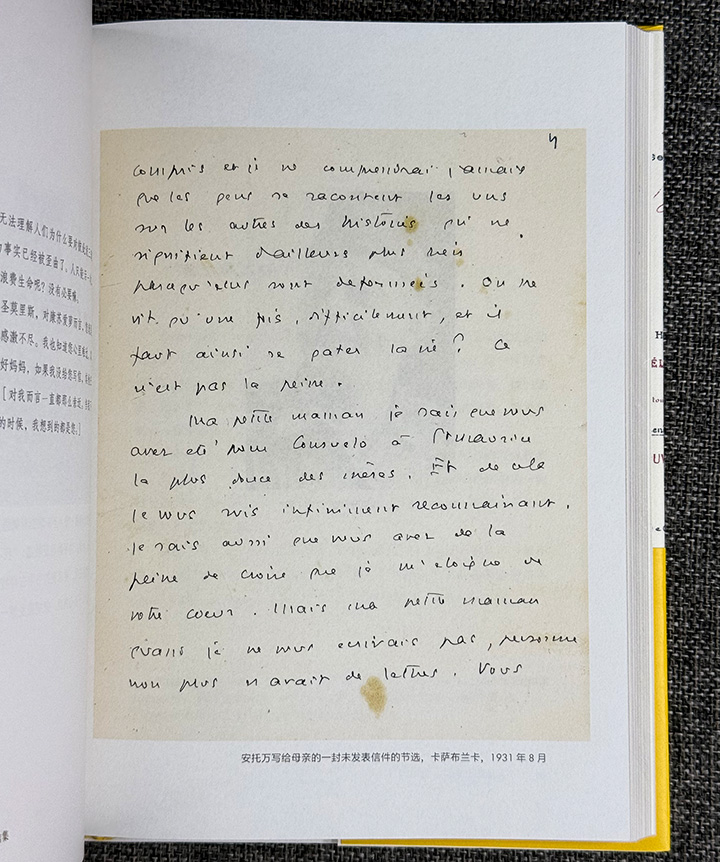 无法理解人们为什么要
事实已经被歪曲了，人
浪费生命呢？没有必要
圣莫里斯，对康苏爱罗而言，
感激不尽。我也知道您心里
好妈妈，如果我没给您写信，
［对我而言一直都那么
的时候，我想到的都是您。］
4
compris et je ne comprendrai jamais
que les gens se racontent les uns
sur les autres des histoires qui ne
signifient d'ailleurs plus rien
parce qu'elles sont deformées. On ne
vit qu'une fois, difficilement, et il
faut ainsi se gater la vie ? Ce
n'est pas la peine.
Ma petite maman je sais que vous
avez eté pour Consuelo à St Maurice
la plus douce des mères. Et de cela
je vous suis infiniment reconnaissant.
Je sais aussi que vous avez de la
peine de croire que je m'eloigne de
votre coeur. Mais ma petite maman
quand je ne vous ecrivais pas, personne
non plus n'avait de lettres. Vous
安托万写给母亲的一封未发表信件的节选，卡萨布兰卡，1931 年 8 月
集